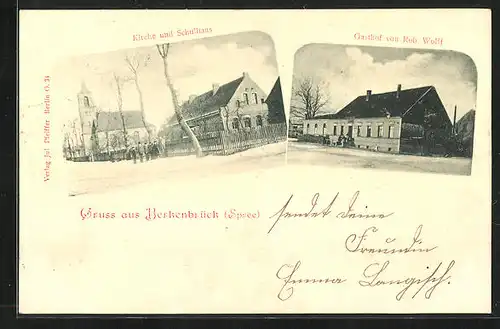 Kirche und Schulhaus
Gasthof von Rob Wolff
Verlag Jul Pfeiffer Berlin O. 34
Gruss aus Berkenbrück (Spree)
sendet Deine
Freundin
Emma Langisch.